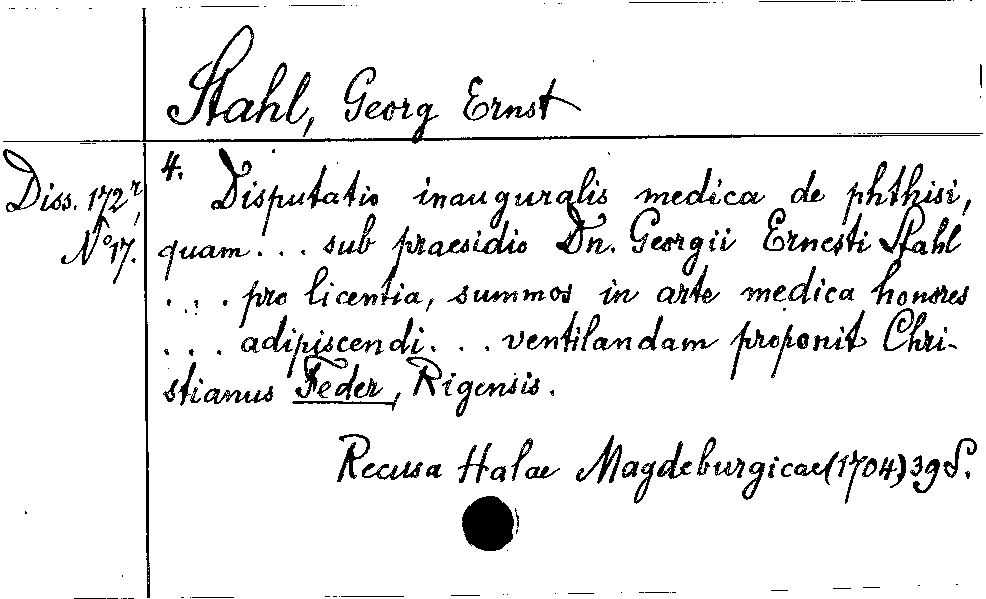 Stahl, Georg Ernst
Diss. 172r,
No 17.
4. Disputatio inauguralis medica de phthisi,
quam... sub praesidio Dn. Georgii Ernesti Stahl
... pro licentia, summos in arte medica honores
... adipiscendi... ventilandam proponit Chri-
stianus Feder, Rigensis.
Recusa Halae Magdeburgicae (1704) 39 S.